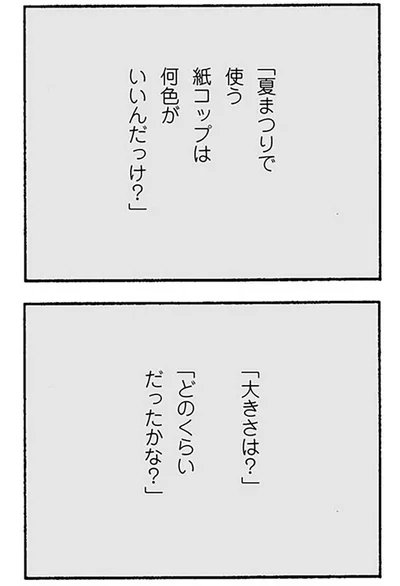 「夏まつりで
使う
紙コップは
何色が
いいんだっけ？」
「大きさは？」
「どのくらい
だったかな？」